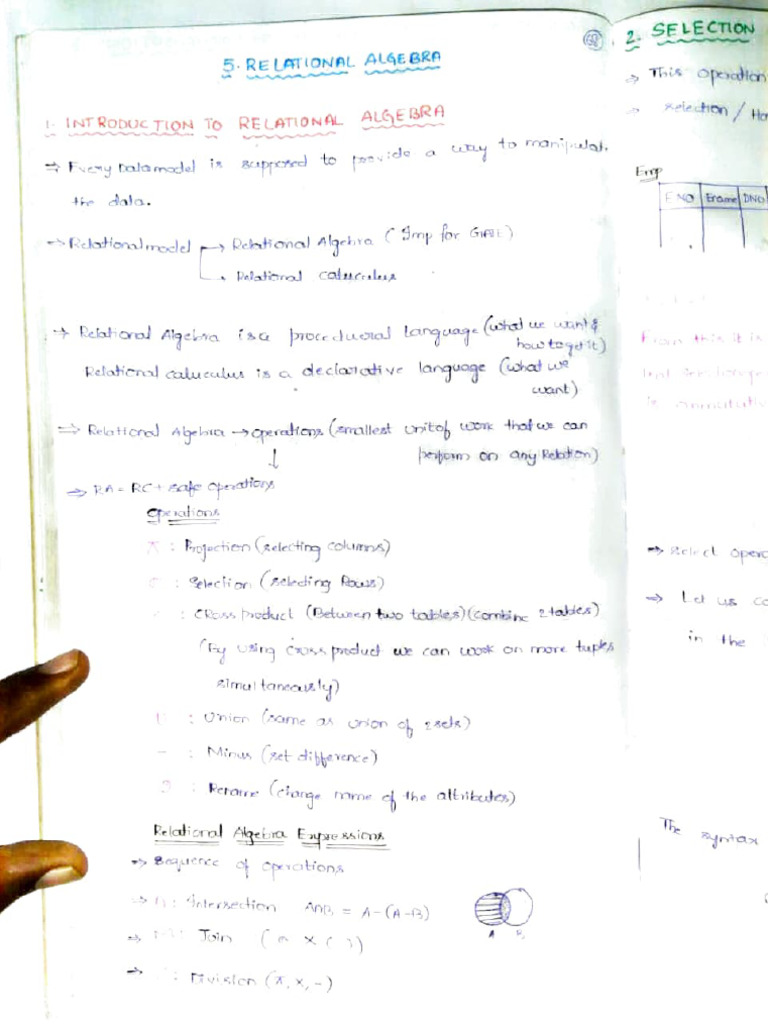 5. RELATIONAL ALGEBRA
1. INTRODUCTION TO RELATIONAL ALGEBRA
⇒ Every Datamodel is supposed to provide a way to manipulat
the data.
→ Relational model → Relational Algebra (Imp for GATE)
→ Relational caluculus
→ Relational Algebra is a procedural language (what we want &
how to get it)
Relational caluculus is a declarative language (what we
want)
⇒ Relational Algebra → operations (smallest unit of work that we can
perform on any Relation)
↓
⇒ RA = RC + safe operations
Operations
π : Projection (selecting columns)
: Selection (selecting Rows)
: CROSS product (Between two tables) (combine 2 tables)
(By using cross product we can work on more tuples
simultaneously)
U : Union (same as union of 2 sets)
- : Minus (set difference)
: Rename (change name of the attributes)
Relational Algebra Expressions
→ Sequence of operations
→ ∩ : Intersection A∩B = A-(A-B)
A
→ Join
→ : Division (π, x, -)
2. SELECTION
⇒ This operation
selection /
Emp
E NO Ename DNO
From this it is
→ select
→ Let us
in the
The syntax